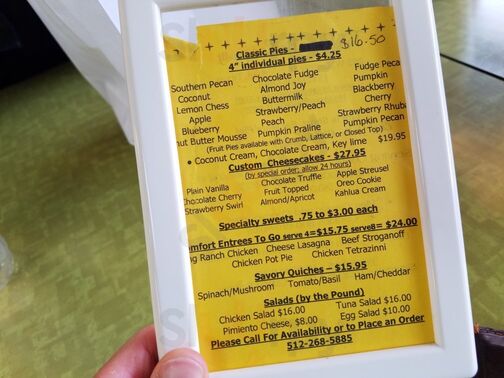 Classic Pies - $16.50
4" individual pies - $4.25
Southern Pecan Chocolate Fudge Fudge Peca
Coconut Almond Joy Pumpkin
Lemon Chess Buttermilk Blackberry
Apple Strawberry/Peach Cherry
Blueberry Peach Strawberry Rhuba
nut Butter Mousse Pumpkin Praline Pumpkin Pecan
(Fruit Pies available with Crumb, Lattice, or Closed Top)
• Coconut Cream, Chocolate Cream, Key lime $19.95
Custom Cheesecakes - $27.95
(by special order; allow 24 hours)
Plain Vanilla Chocolate Truffle Apple Streusel
Chocolate Cherry Fruit Topped Oreo Cookie
Strawberry Swirl Almond/Apricot Kahlua Cream
Specialty sweets .75 to $3.00 each
omfort Entrees To Go serve 4=$15.75 serve8= $24.00
ng Ranch Chicken Cheese Lasagna Beef Stroganoff
Chicken Pot Pie Chicken Tetrazzini
Savory Quiches – $15.95
Spinach/Mushroom Tomato/Basil Ham/Cheddar
Salads (by the Pound)
Chicken Salad $16.00 Tuna Salad $16.00
Pimiento Cheese, $8.00 Egg Salad $10.00
Please Call For Availability or to Place an Order
512-268-5885